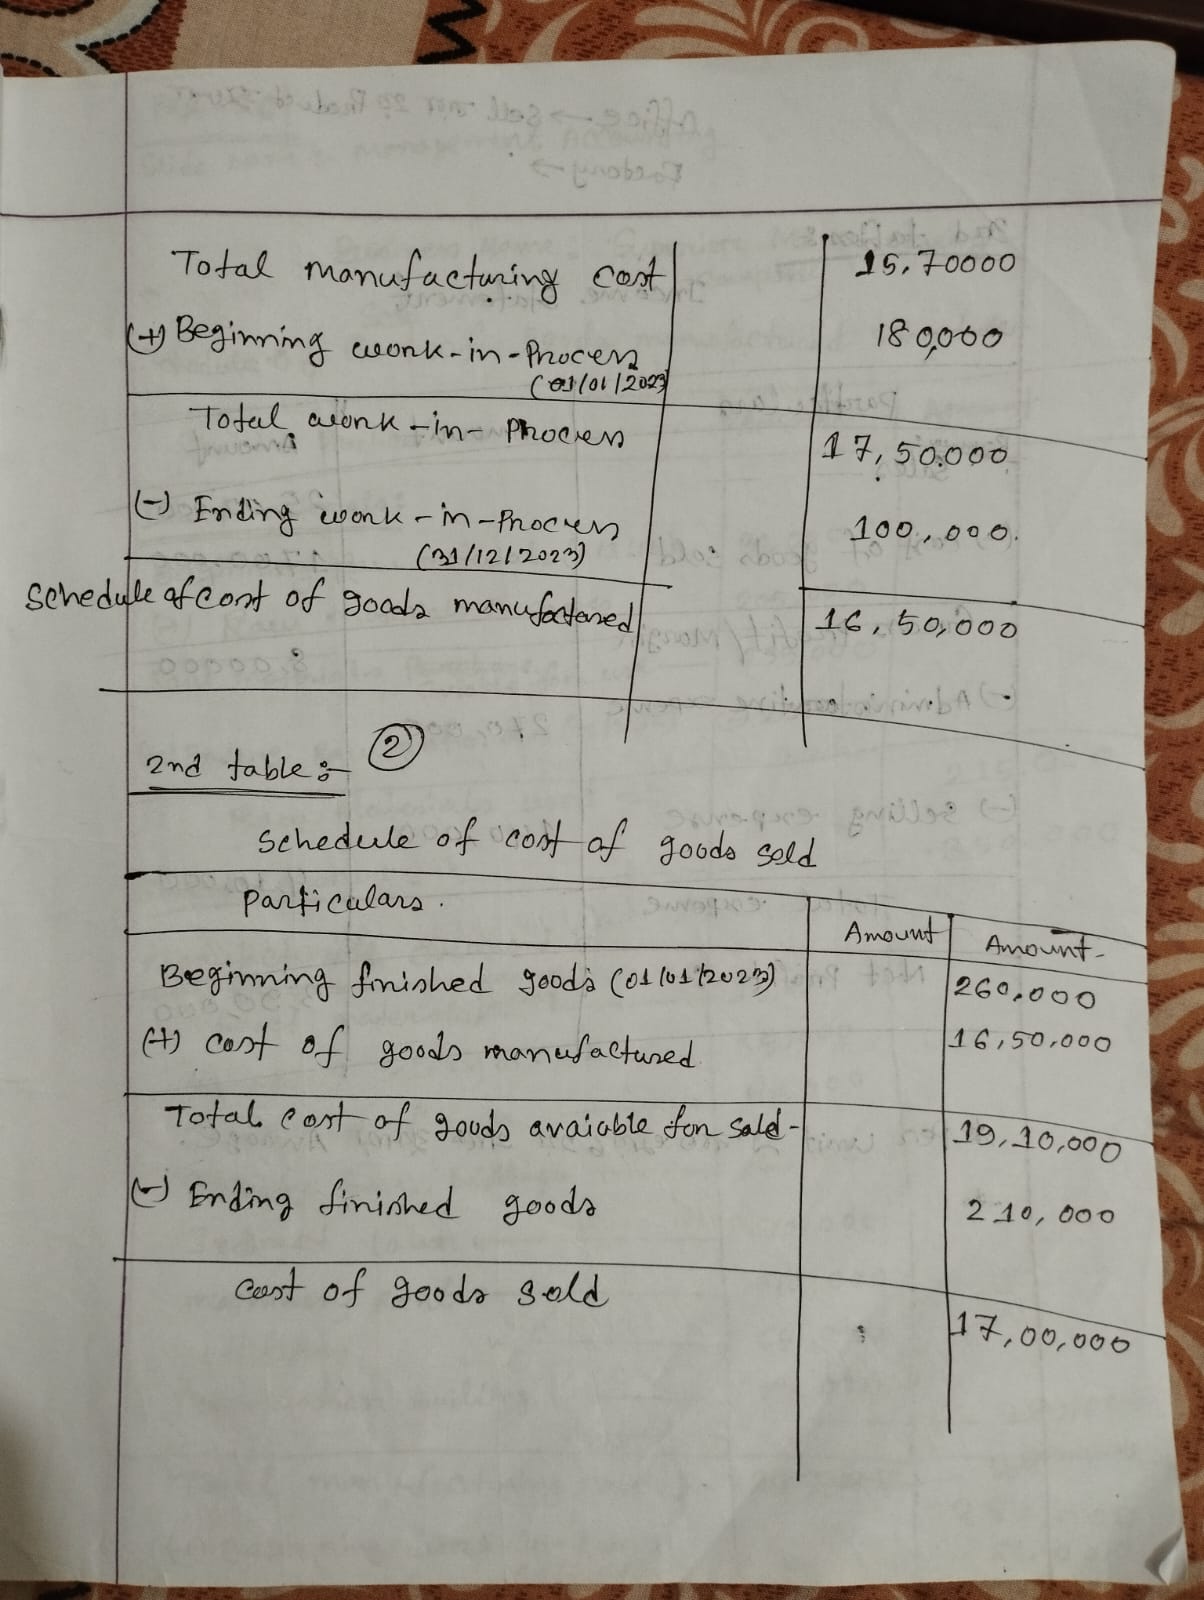 Total manufacturing cost 15,70000
(+) Beginning work-in-Process 180,000
(01/01/2023)
Total work-in-Process 17,50,000
(-) Ending work-in-Process 100,000.
(31/12/2023)
Schedule of cost of goods manufactured 16,50,000
2nd table :- 2
Schedule of cost of goods sold
Particulars. Amount Amount
Beginning finished goods (01/01/2023) 260,000
(+) cost of goods manufactured 16,50,000
Total cost of goods avaiable for sald- 19,10,000
(-) Ending finished goods 210,000
Cost of goods sold 17,00,000